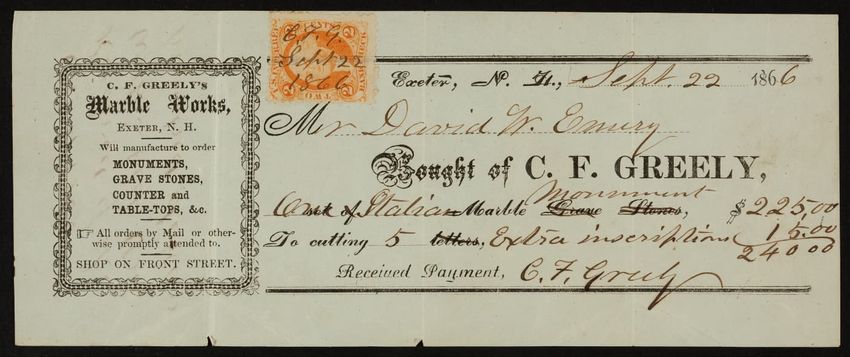 C. F. GREELY'S
Marble Works,
EXETER, N. H.
Will manufacture to order
MONUMENTS,
GRAVE STONES,
COUNTER and
TABLE-TOPS, &c.
☞ All orders by Mail or other-
wise promptly attended to.
SHOP ON FRONT STREET.
C. F. G
Sept 22
1866
Exeter, N. H., Sept. 22 1866
Mr David W. Emery
Bought of C. F. GREELY,
Monument
One set of Italian Marble Grave Stones, $225,00
To cutting 5 letters, Extra inscriptions 15.00
240 00
Received Payment, C. F. Greely